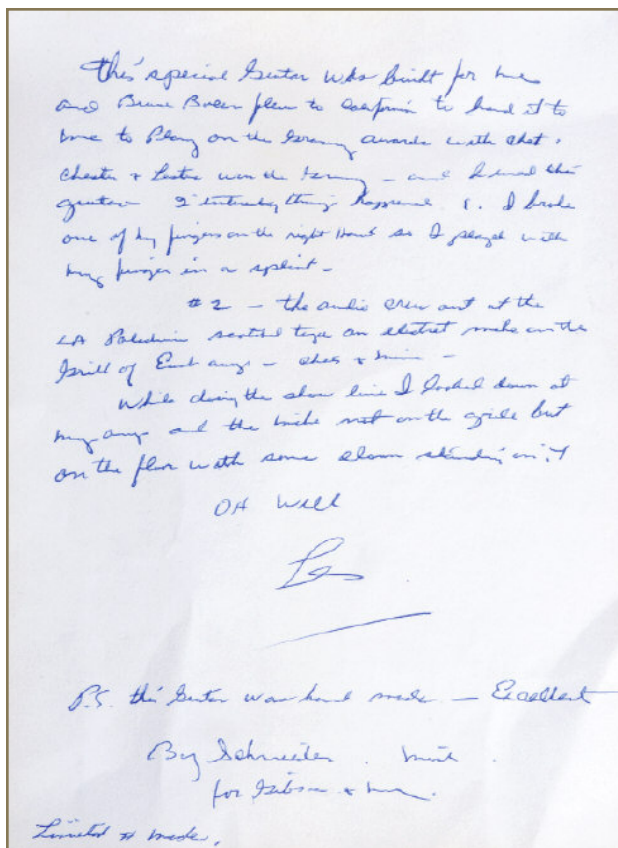 This special Guitar was built for me
and Bruce Bolen flew to California to hand it to
me to Play on the Grammy awards with Chet.
Chester & Lester won the Grammy - and I used this
guitar 2 things happened 1. I broke
one of my fingers on the right Hand so I played with
my finger in a splint -
#2 - the audio crew out at the
LA scotch tape an electret mike on the
Grill of Each amp - Chets & mine -
While doing the show live I looked down at
my amp and the mike not on the grille but
on the floor with some clown standing on it
OH Well
Les
P.S. this Guitar was hand made - Excellent
By Schneider. mint.
for Gibson & me.
Limited # made.